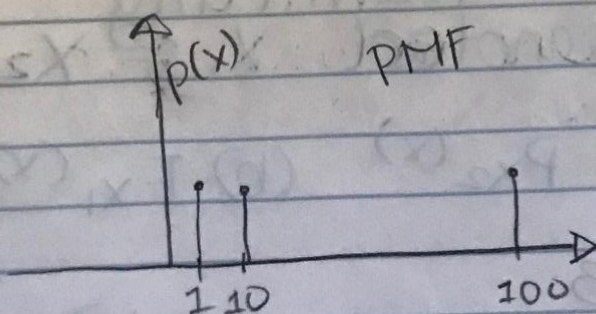 p(x) PMF
1 10 100